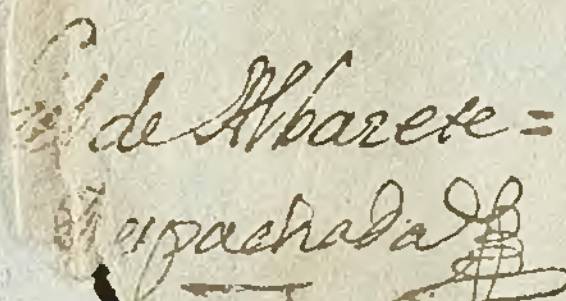 de Albazete =
espachada